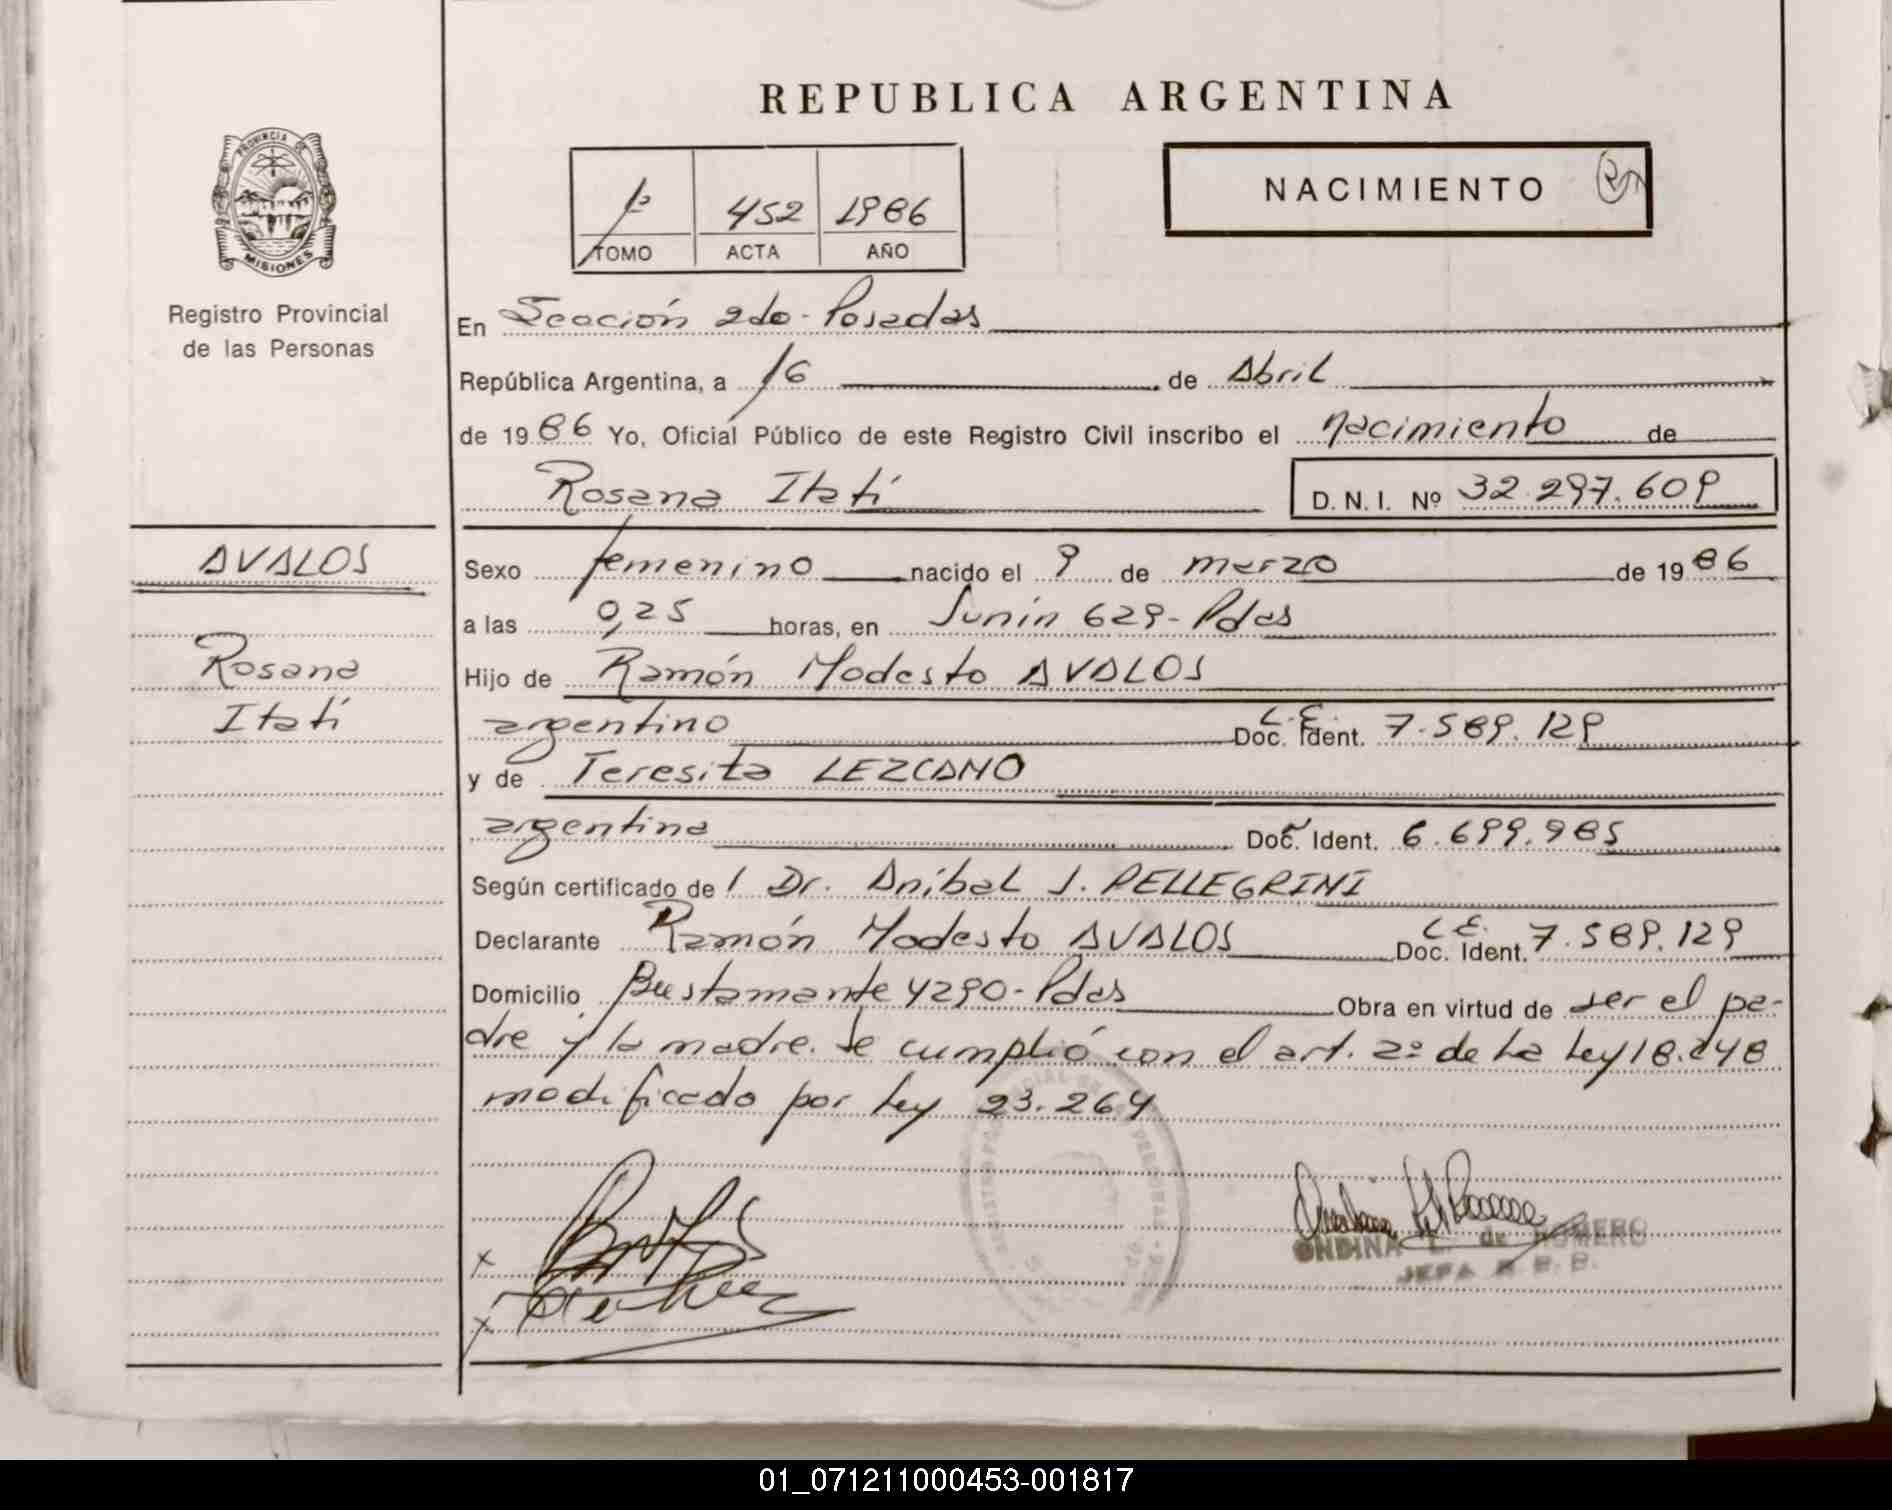 REPUBLICA ARGENTINA
PROVINCIA DE
MISIONES
Registro Provincial
de las Personas
1º 452 1986
TOMO ACTA AÑO
NACIMIENTO
En Sección 2do - Posadas
República Argentina, a 16 de Abril
de 1986 Yo, Oficial Público de este Registro Civil inscribo el nacimiento de
Rosana Itatí D.N.I. Nº 32.297.609
AVALOS
Rosana
Itatí
Sexo femenino nacido el 9 de marzo de 1986
a las 0,25 horas, en Junín 629 - Pdas
Hijo de Ramón Modesto AVALOS
argentino L.E. Doc. Ident. 7.589.129
y de Teresita LEZCANO
argentina Doc. Ident. 6.699.985
Según certificado de 1 Dr. Aníbal J. PELLEGRINI
Declarante Ramón Modesto AVALOS L.E. Doc. Ident. 7.589.129
Domicilio Bustamante 4290 - Pdas Obra en virtud de ser el pa-
dre y la madre. Se cumplió con el art. 2º de la ley 18.248
modificado por ley 23.264
ONDINA L. de ROMERO
JEFA
01_071211000453-001817